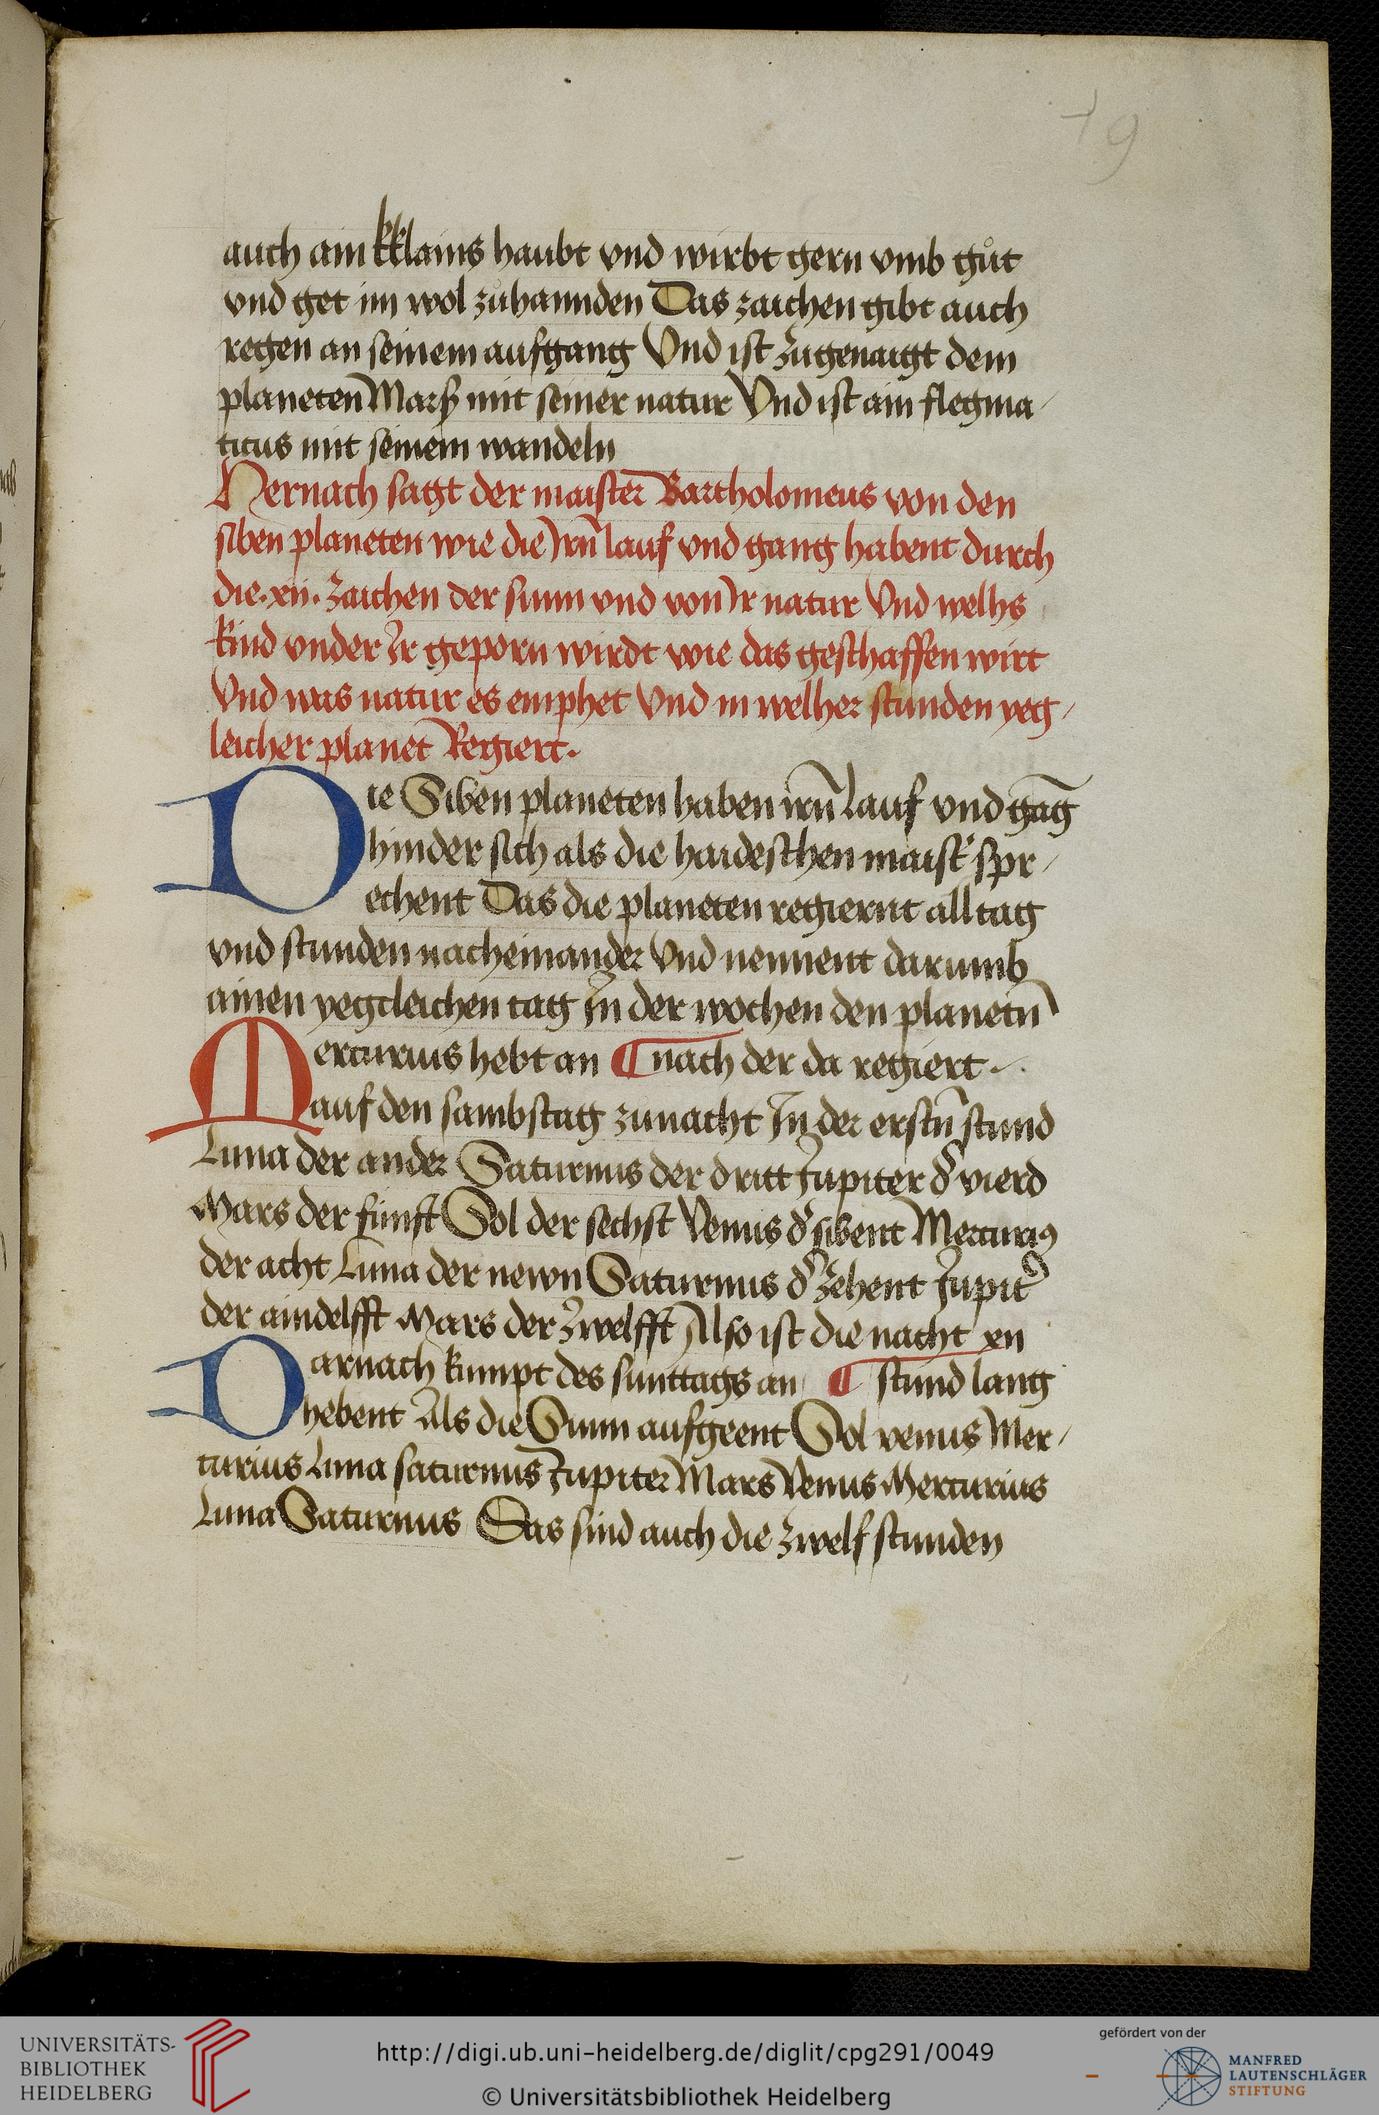 19
auch ain kklains haubt vnd wirbt gern vmb gůt
vnd get im wol zůhannden Das zaichen gibt auch
regen an seinem aufgang Vnd ist zugenaigt dem
planeten Marß mit seiner natur Vnd ist ain flegma-
ticus mit seinem wandeln
Hernach sagt der maister Bartholomeus von den
siben planeten wie die irn̄ lauf vnd gang habent durch
die .xii. zaichen der sunn vnd von Ir natur Vnd welhs
kind vnder Ir geporn wirdt wie das geschaffen wirt
Vnd was natur es emphet Vnd in welher stunden yeg-
leicher planet Regiert.
Die Siben planeten haben irn̄ lauf vnd gāg
hinder sich als die haideschen maist' spr-
echent Das die planeten regiernt all tag
vnd stunden nacheinander Vnd nennent darumb
ainen yegcleichen tag In der wochen den planetn̄
Mercurius hebt an ¶ nach der da regiert.
auf den sambstag zunacht In der erstn̄ stund
Luna der ander Saturnus der dritt Jupiter d' vierd
Mars der fünft Sol der sechst Venus d' sibent Mercurig
der acht Luna der newn Saturnus d' zehent Jupit'
der aindelfft Mars der zwelfft Also ist die nacht xii
Darnach kumpt des sunttags an ¶ stund lang
hebent Als die Sunn aufgeent Sol venus Mer-
curius Luna saturnus Jupiter Mars Venus Mercurius
Luna Saturnus Das sind auch die zwelf stunden
UNIVERSITÄTS-
BIBLIOTHEK
HEIDELBERG
http://digi.ub.uni-heidelberg.de/diglit/cpg291/0049
© Universitätsbibliothek Heidelberg
gefördert von der
MANFRED
LAUTENSCHLÄGER
STIFTUNG